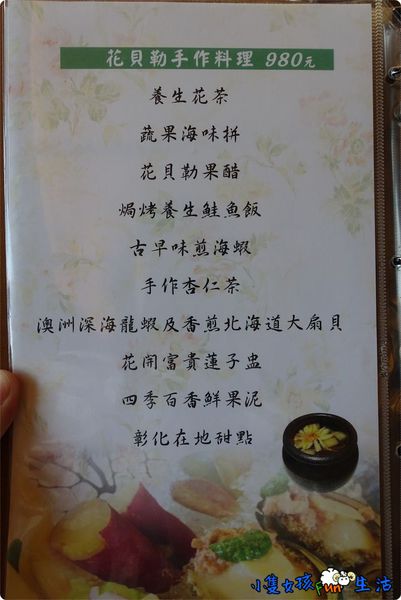 花貝勒手作料理 980元
養生花茶
蔬果海味拼
花貝勒果醋
焗烤養生鮭魚飯
古早味煎海蝦
手作杏仁茶
澳洲深海龍蝦及香煎北海道大扇貝
花開富貴蓮子盅
四季百香鮮果泥
彰化在地甜點
小隻女孩Fun生活